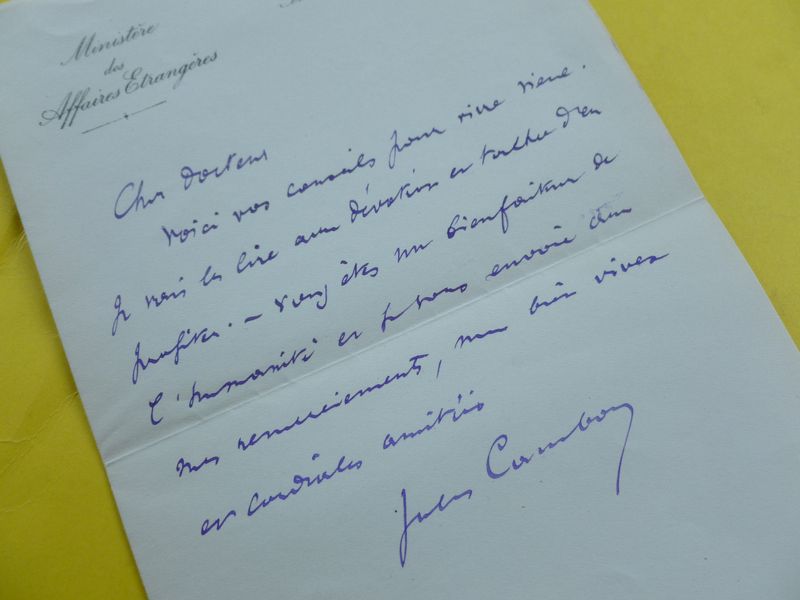 Ministère
des
Affaires Etrangères
Cher docteur
Voici vos conseils pour vivre vieux.
Je vais les lire avec dévotion et tâcher d'en
profiter. – Vous êtes un bienfaiteur de
l'humanité et je vous envoie avec
mes remerciements, mes bien vives
et cordiales amitiés
Jules Cambon